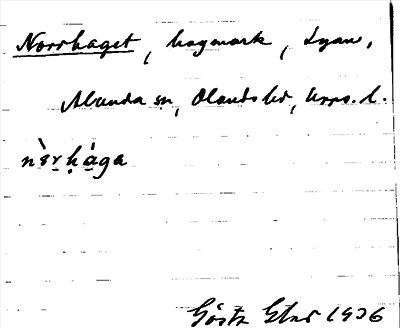 Norrhaget, hagmark, Lyan,
Alunda sn, Olands hd, Upps. l.
nὲr̭ḥà̱ga
Gösta Elus 1936